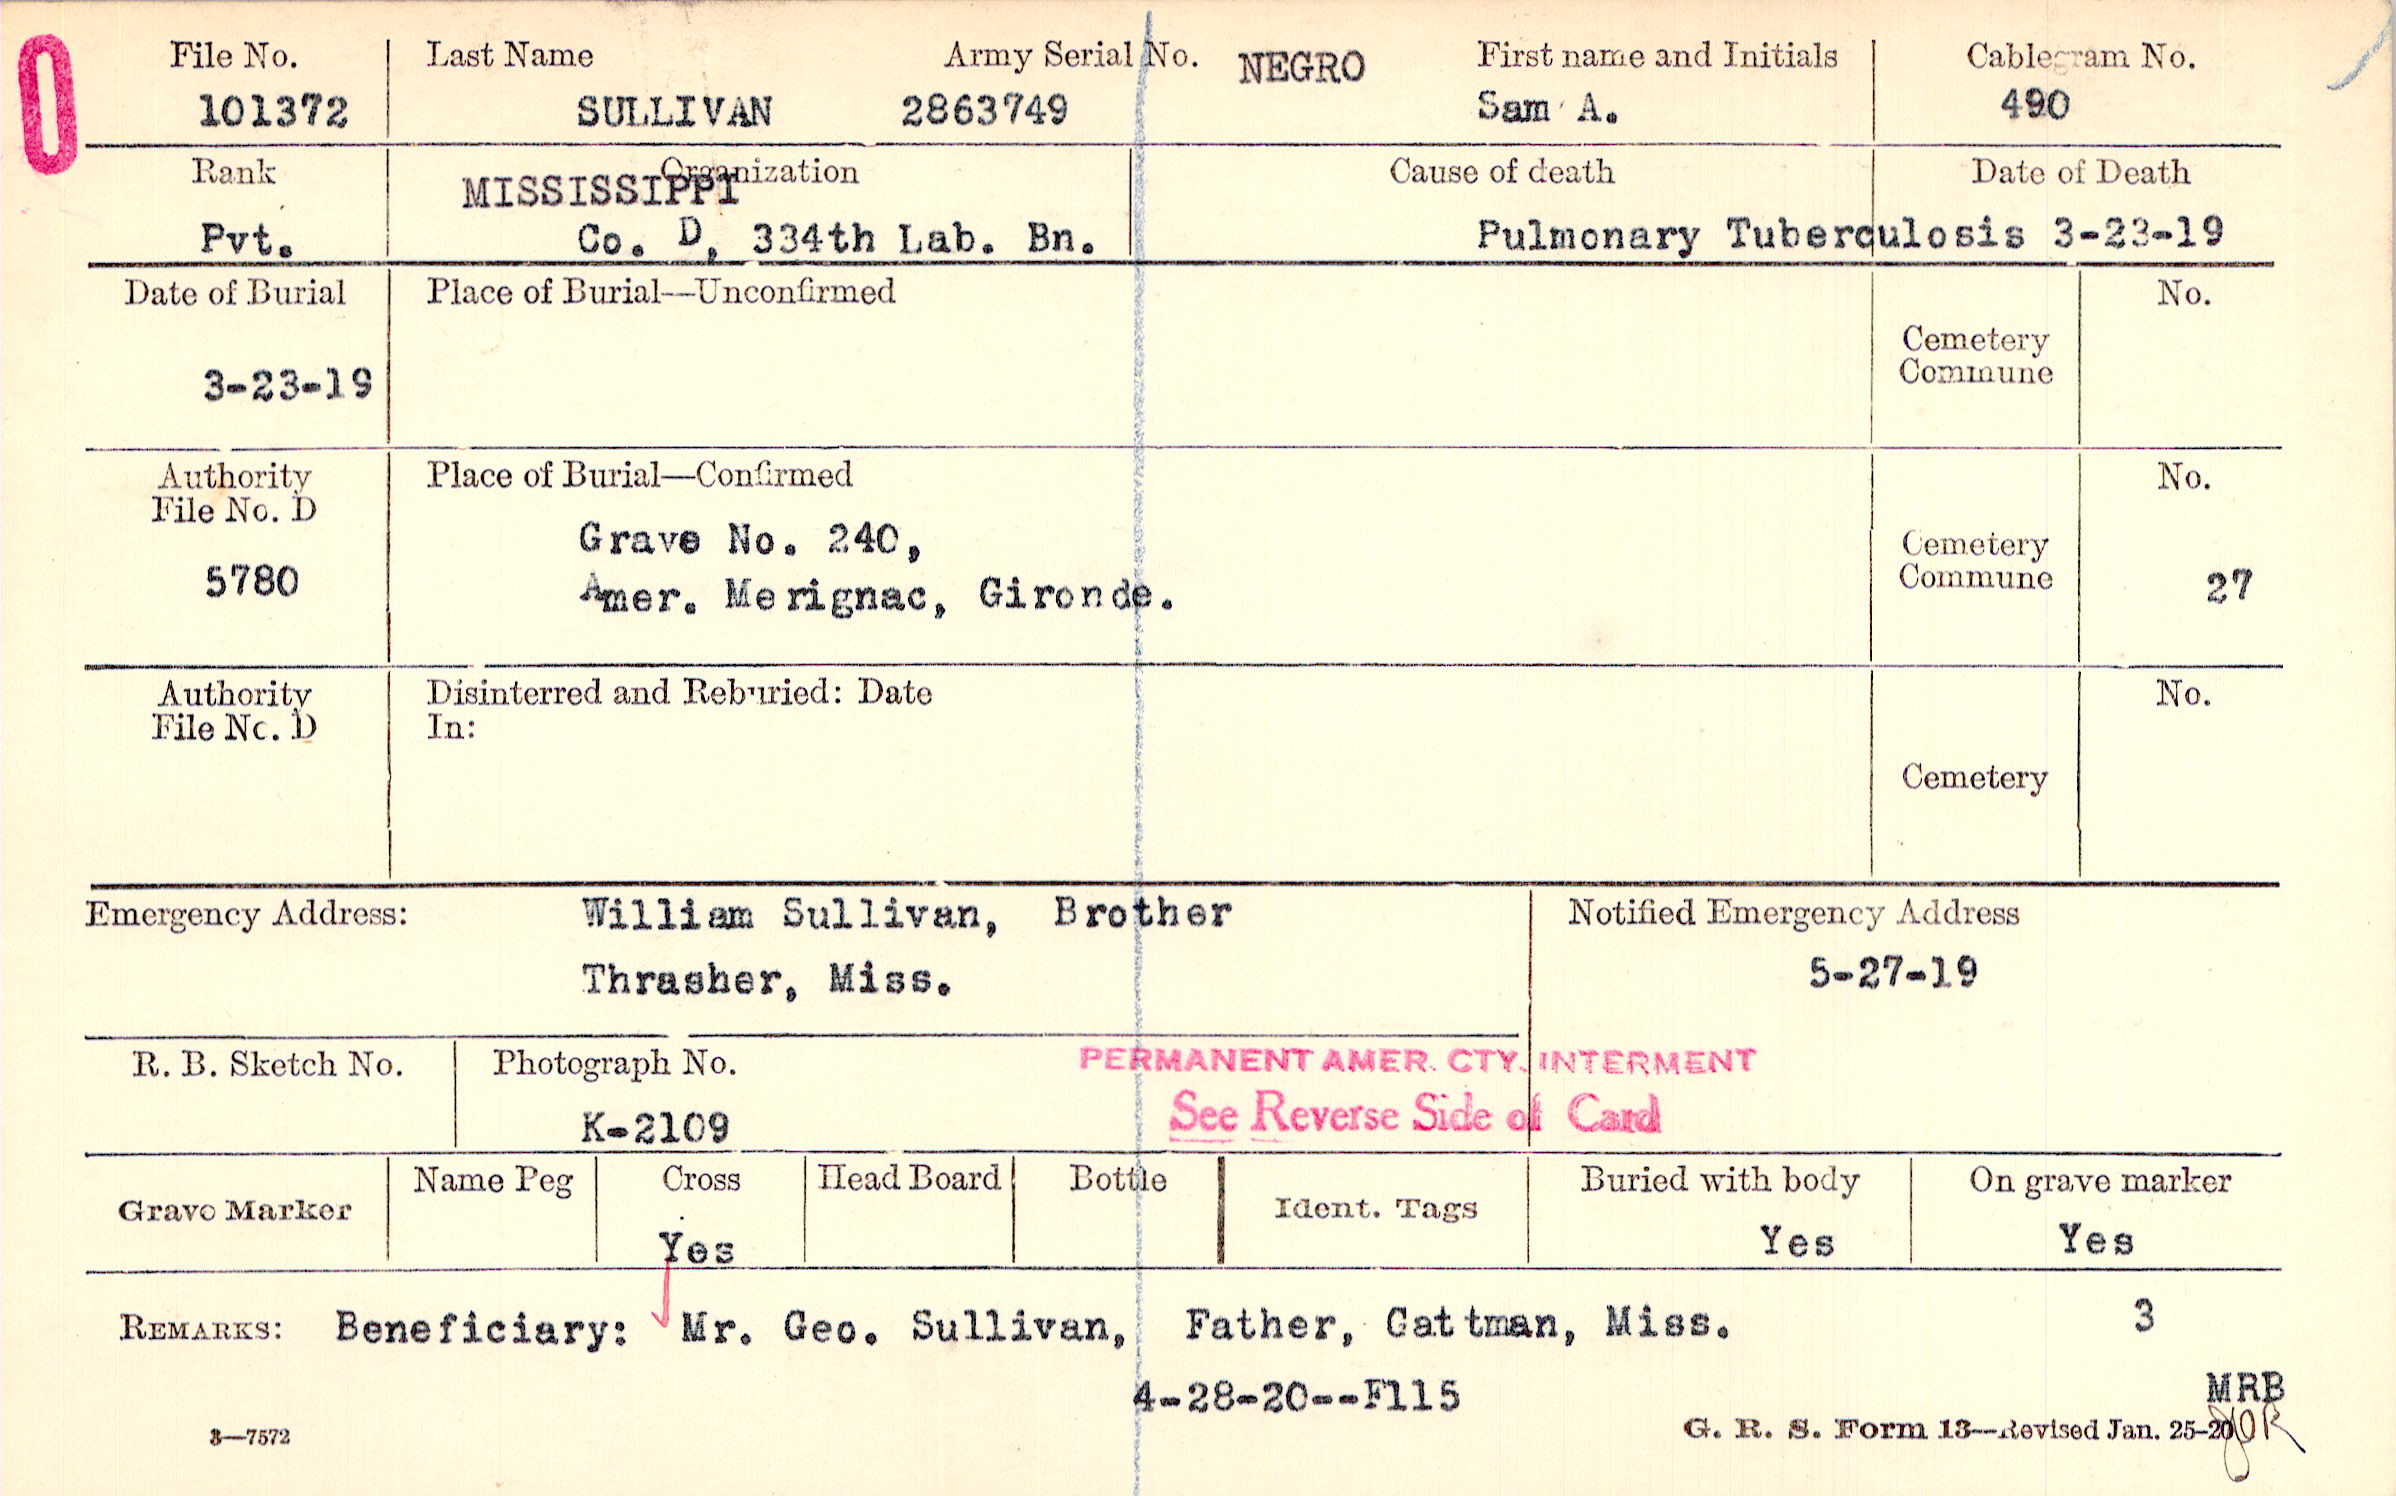 File No. Last Name Army Serial No. NEGRO First name and Initials Cablegram No.
101372 SULLIVAN 2863749 Sam A. 490
Rank Organization Cause of death Date of Death
MISSISSIPPI
Pvt. Co. D, 334th Lab. Bn. Pulmonary Tuberculosis 3-23-19
Date of Burial Place of Burial—Unconfirmed No.
Cemetery
Commune
3-23-19
Authority Place of Burial—Confirmed No.
File No. D
Grave No. 240, Cemetery
5780 Amer. Merignac, Gironde. Commune 27
Authority Disinterred and Reburied: Date No.
File No. D In:
Cemetery
Emergency Address: William Sullivan, Brother Notified Emergency Address
Thrasher, Miss. 5-27-19
R. B. Sketch No. Photograph No. PERMANENT AMER. CTY. INTERMENT
K-2109 See Reverse Side of Card
Grave Marker Name Peg Cross Head Board Bottle Ident. Tags Buried with body On grave marker
Yes Yes Yes
REMARKS: Beneficiary: Mr. Geo. Sullivan, Father, Gattman, Miss. 3
4-28-20--F115 MRB
3—7572 G. R. S. Form 13—Revised Jan. 25-20